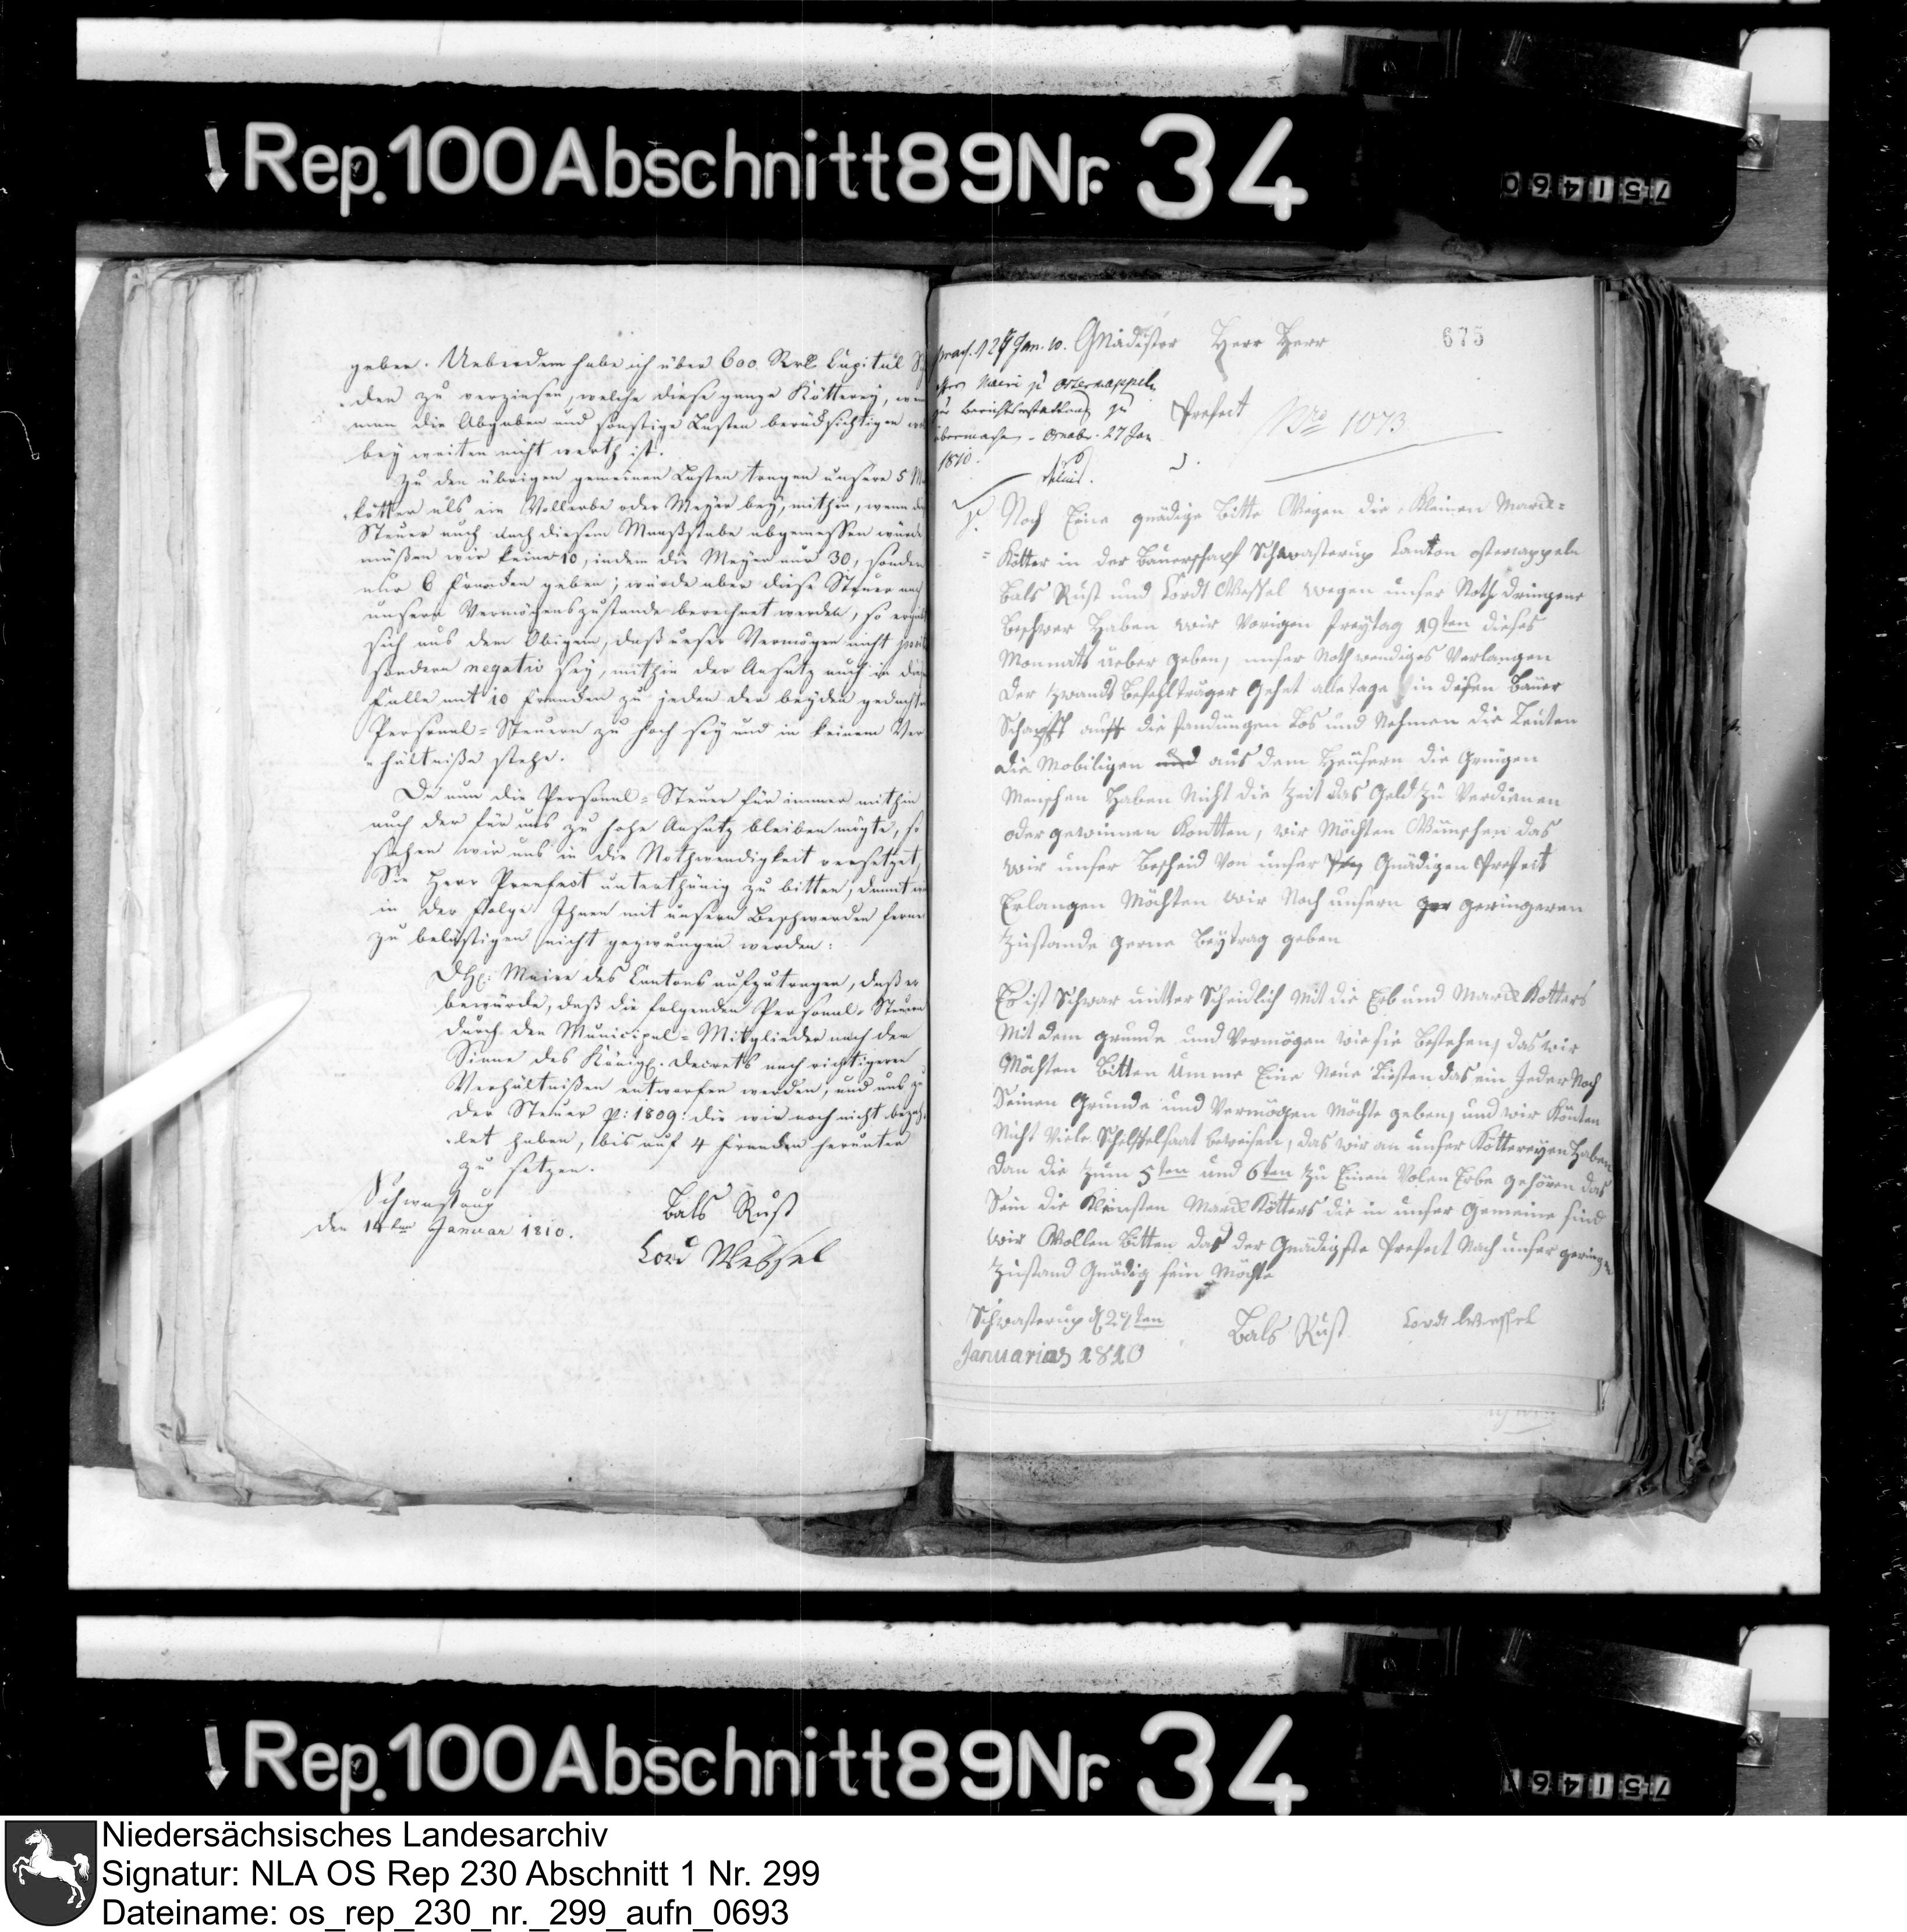 Rep. 100 Abschnitt 89 Nr. 34
751460
geben. Ueberdem habe ich über 600 Rtl Capital
den zu verzinsen, welche diese ganze Kötterey, wenn
man die Abgaben und sonstige Lasten berücksichtigen
bey weiten nicht werth ist.
Zu den übrigen gemeinen Lasten tragen unsere 5
kötter als ein Vollerbe oder Meyer bey, mithin, wenn
Steuer auch nach diesem Maaßstabe abgemessen würde
müßen wir keine 10, indem die Meyer nur 30, sondern
nur 6 Franken geben; würde aber diese Steuer nach
unserm Vermögenszustande berechnet werden, so
sich aus dem Obigem, daß unser Vermögen nicht
sondern negativ sey, mithin der Ansatz auch in
Falle mit 10 Franken zu jeden der beyden gedachten
Personal-Steuern zu hoch sey und in keinem Ver
hältniße stehe.
Da nun die Personal-Steuer für immer mithin
auch der für uns zu hohe Ansatz bleiben mögte, so
sehen wir uns in die Nothwendigkeit versetzet,
Sie Herr Praefect unterthänig zu bitten, damit wir
in der Folge Ihnen mit unsern Beschwerden ferner
zu belästigen nicht gezwungen werden:
Maire des Cantons aufzutragen, daß er
bewürde, daß die folgenden Personal-Steuern
durch den Municipal-Mitglieder nach den
Sinne des Königl. Decrets nach richtigeren
Verhältnißen entworfen werden, und uns zu
der Steuer p: 1809: die wir noch nicht
haben, bis auf 4 Franken herunter
zu setzen.
Schwastrup
den 14ten Januar 1810.
Bals Rust
Cord Wessel
675
praes. d 27 Jan. 10. Gnädister Herr Herr
Maire zu Ostercappeln
zur Berichtserstattung zu
Prefect
Nro 1073
übermachen - Osnabr. 27 Jan
1810.
Noch Eine gnädige Bitte Wegen die Kleinen Marck=
=Kötter in der Bauerschapf Schwasterup Canton ostercappeln
Bals Rust und Cordt Wessel wegen unser Noth dringens
Beschwer Haben wir Vorigen freytag 19ten dieses
Monnats üeber geben, unser Noth wendiges Verlangen
Der zwands Befehlträger Gehet alle tage in diesen Bauer
Schapfft auff die fandüngen Los und Nehmen die Leuten
die Mobiligen und aus dem Heüsern die
Menschen Haben Nicht die Zeit das Geld zu Verdienen
oder gewinnen Kontten, wir Möchten Wünschen das
wir unser Bescheid von unser Gnädigen Prefect
Erlangen Möchten wir Noch unsern ger geringeren
Zustande gerne Beytrag geben
Es ist Schwar unter Scheidlich Mit die Erb und Marck Kotters
Mit dem grunde und Vermögen wie sie Bestehen, das wir
Möchten Bitten Umme Eine Neue Liesten das ein Jeder Noch
Seinen Grunde und Vermögen Möchte geben, und wir Könten
Nicht Viele Scheffelsaat beweisen, das wir an unser Köttereyen Haben
Dan die Zum 5ten und 6ten zu Einen Volen Erbe gehören das
Sein die Kleinsten Marck Kötters die in unser Gemeine sind
wir Wollen Bitten das der Gnädigste Prefect Nach unser geringen
Zustand Gnädig sein Möchte
Schwasterup d 27ten
Januarias 1810
Bals Rust
Cordt Wessel
Rep. 100 Abschnitt 89 Nr. 34
751461
Niedersächsisches Landesarchiv
Signatur: NLA OS Rep 230 Abschnitt 1 Nr. 299
Dateiname: os_rep_230_nr._299_aufn_0693